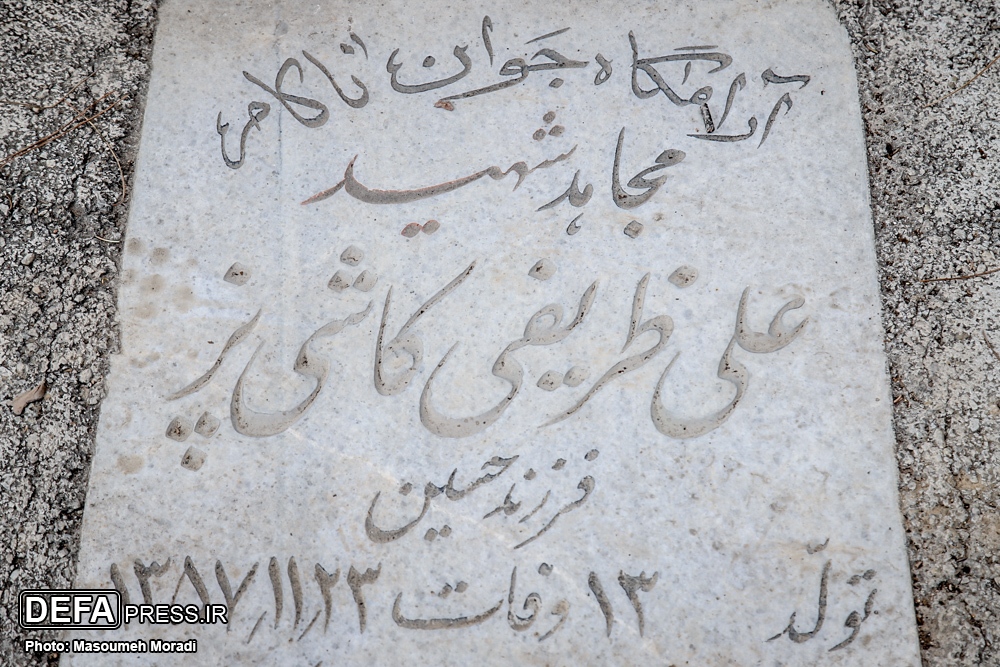 آرامگاه جوان ناکام
مجاهد شهید
علی ظریفی کاشی پز
فرزند حسین
تولّد ۱۳ وفات ۱۳۸۷/۱۱/۲۳
DEFAPRESS.IR
Photo: Masoumeh Moradi